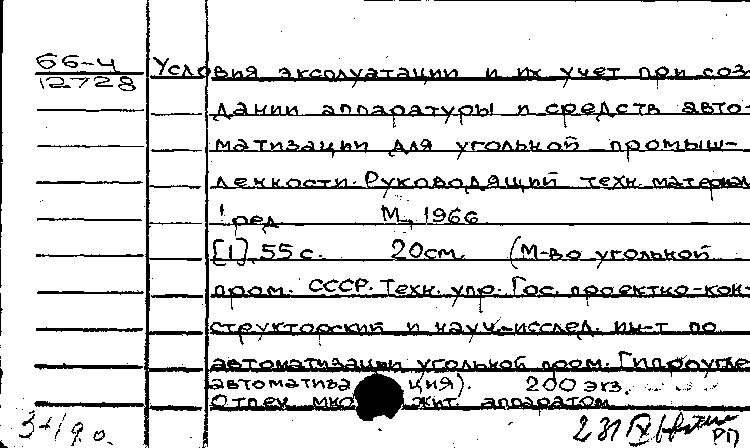 66-4
12728
Условия эксолуатации и их учет при соз-
дании аппаратуры и средств авто-
матизации для угольной промыш-
ленности. Руководящий техн. материал
! ред М., 1966
[1], 55 с. 20 см. (М-во угольной
пром. СССР. Техн. упр. Гос. проектно-кон-
структорский и науч-исслед. ин-т по
автоматизации угольной пром. Гипроугле-
автоматиза ция). 200 экз.
Отпеч. мно жит. аппаратом
РП